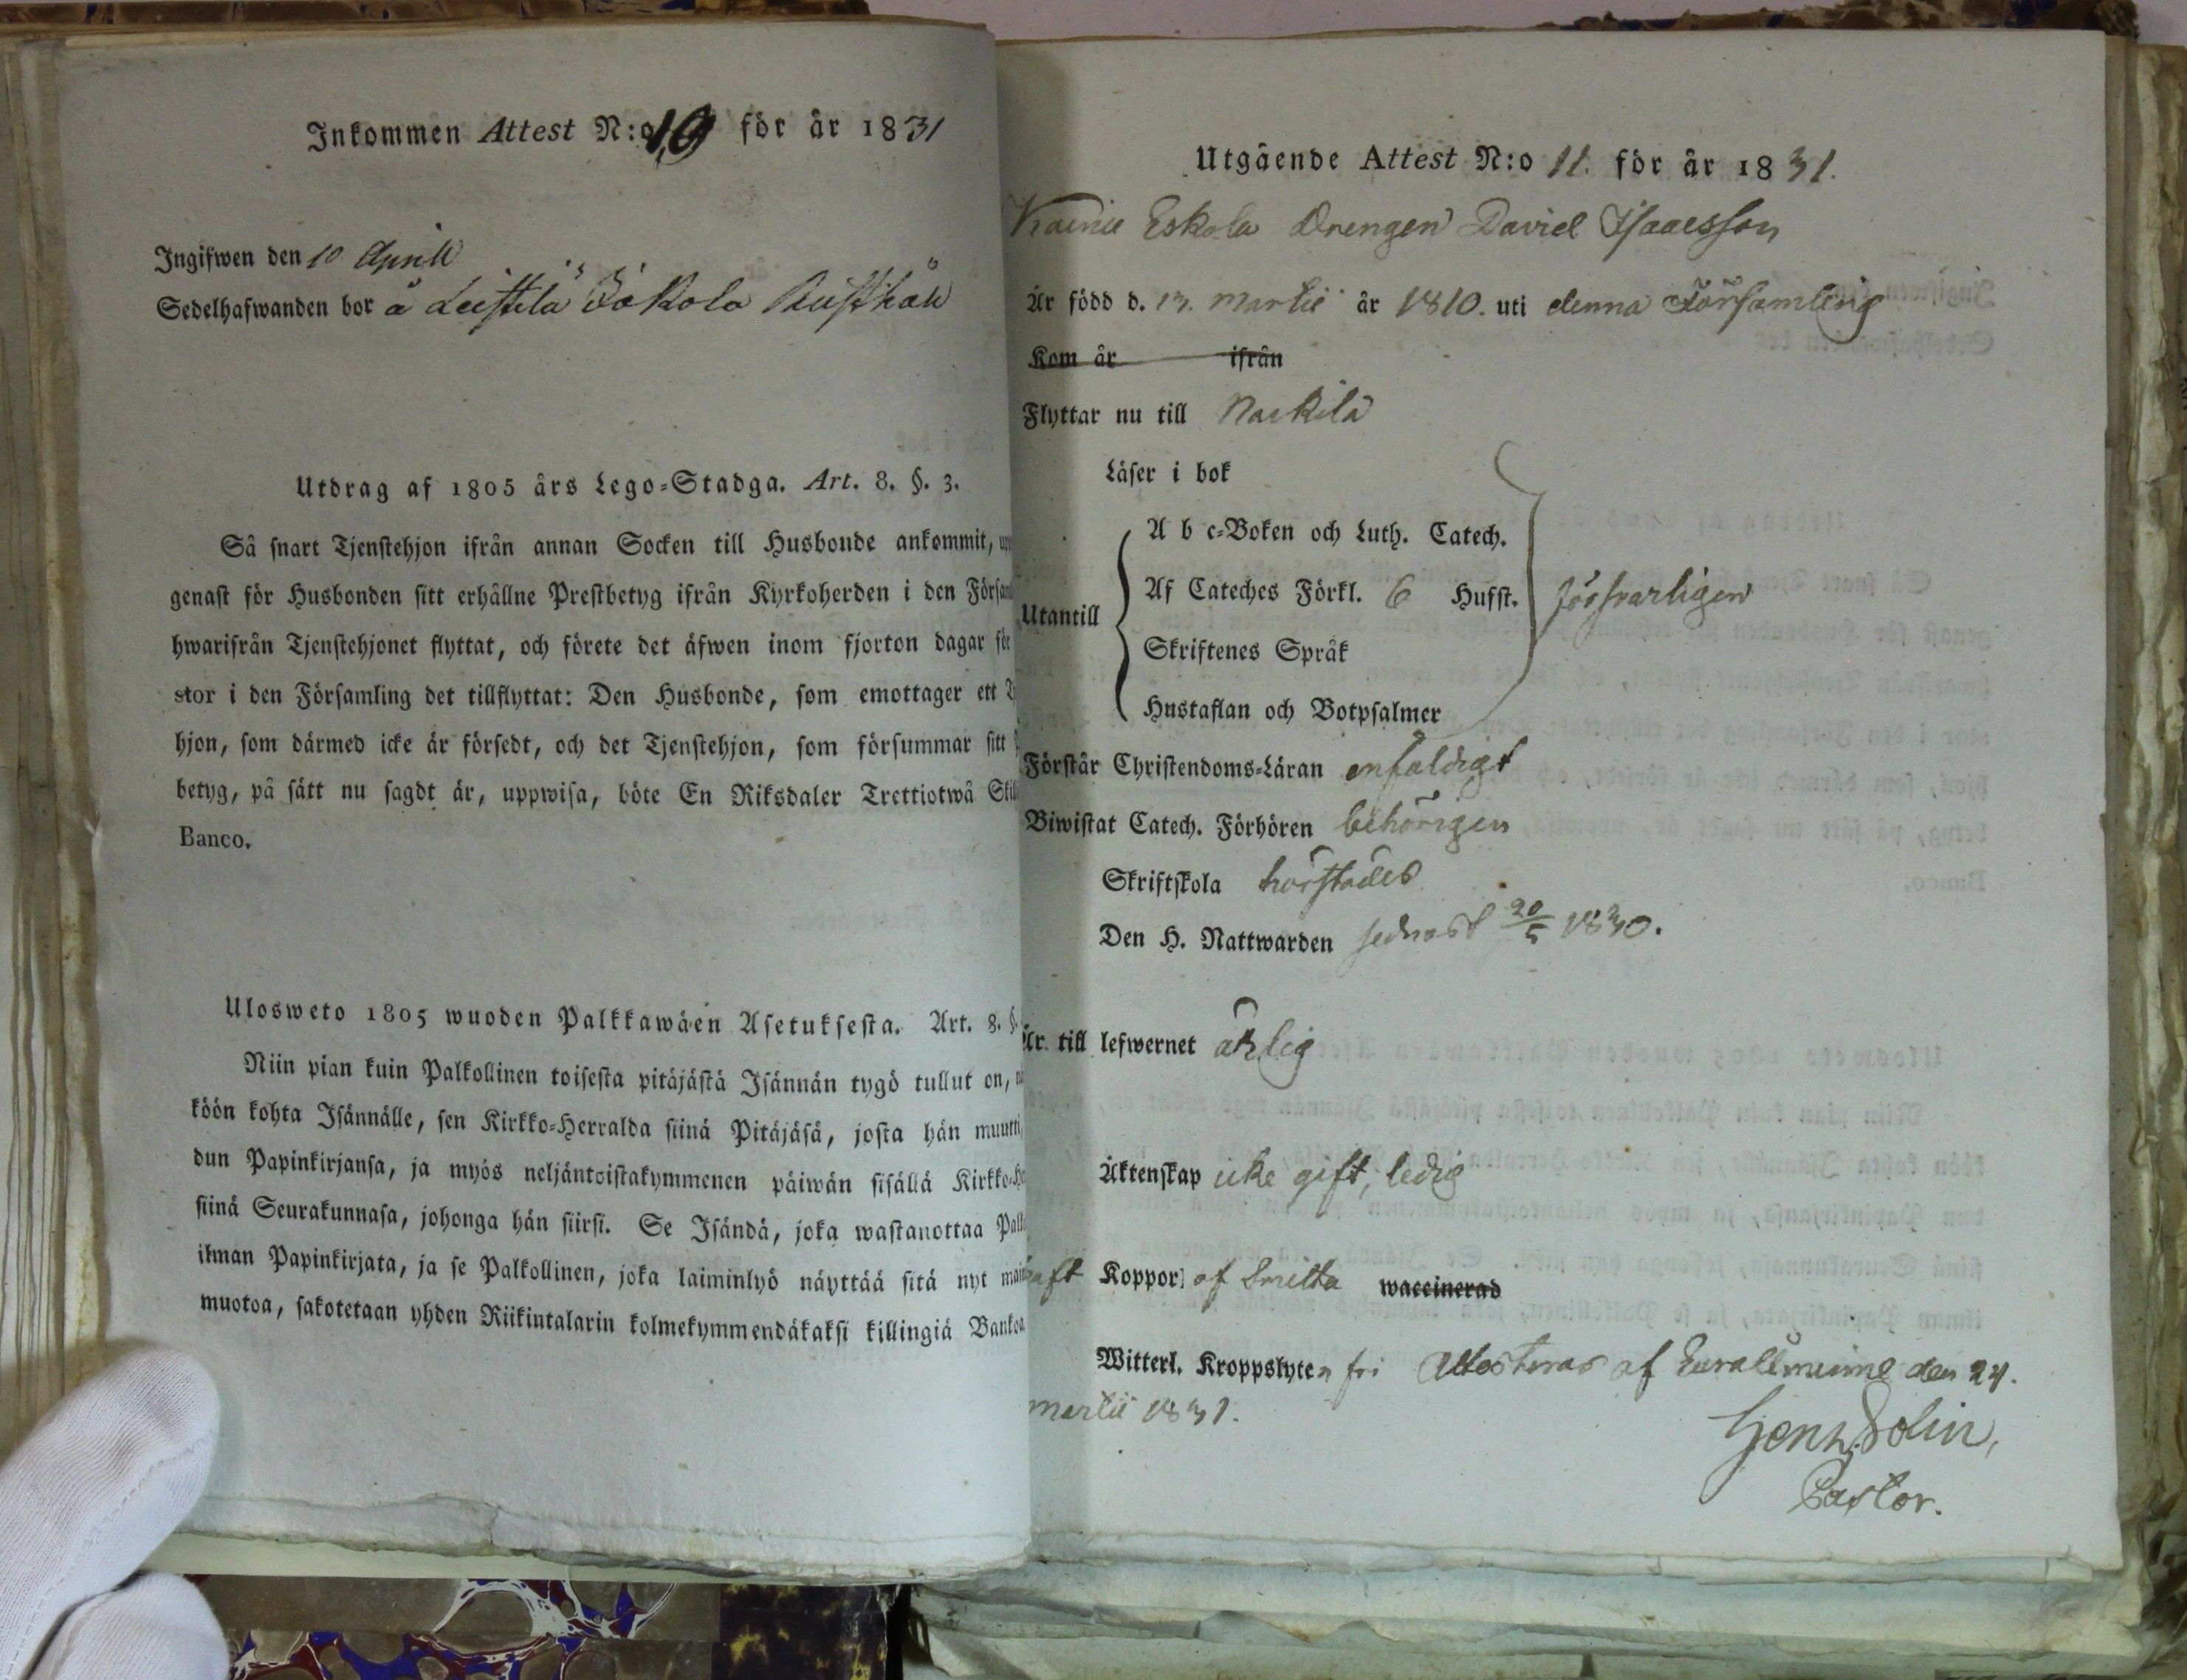 Inkommen Attest N:o 19 för år 1831
Ingifwen den 10 Aprill
Sedelhafwanden bor å Leistilä Jokola Rusthåll
Utdrag af 1805 års Lego-Stadga. Art. 8. §. 3.
Så snart Tjenstehjon ifrån annan Socken till Husbonde ankommit,
genast för Husbonden sitt erhållne Prestbetyg ifrån Kyrkoherden i den
hwarifrån Tjenstehjonet flyttat, och förete det äfwen inom fjorton dagar för
stor i den Församling det tillflyttat: Den Husbonde, som emottager ett
hjon, som därmed icke är försedt, och det Tjenstehjon, som försummar sitt
betyg, på sätt nu sagdt är, uppwisa, böte En Riksdaler Trettiotwå
Banco.
Ulosweto 1805 wuoden Palkkawäen Asetuksesta. Art. 8. §.
Niin pian kuin Palkollinen toisesta pitäjästä Isännän tygö tullut on,
köön kohta Isännälle, sen Kirkko-Herralda siinä Pitäjäsä, josta hän muutti,
dun Papinkirjansa, ja myös neljäntoistakymmenen päiwän sisällä
siinä Seurakunnasa, johonga hän siirsi. Se Isändä, joka wastanottaa
ilman Papinkirjata, ja se Palkollinen, joka laiminlyö näyttää sitä nyt
muotoa, sakotetaan yhden Riikintalarin kolmekymmendäkaksi killingiä
Utgående Attest N:o 11. för år 1831.
Eskola Drengen David Isaacsson
Är född d. 13. Martii år 1810. uti denna Församling
Kom år ifrån
Flyttar nu till Nackila
Läser i bok
A b c-Boken och Luth. Catech.
Af Cateches Förkl. 6 Hufst.
Utantill
försvarligen
Skriftenes Språk
Hustaflan och Botpsalmer
Förstår Christendoms-Läran enfaldigt
Biwistat Catech. Förhören behörigen
Skriftskola härstädes
Den H. Nattwarden sednast 20/5 1830.
Är till lefwernet ärlig
Äktenskap icke gift, ledig
haft Koppor af Smitta waccinerad
Witterl. Kroppslyten fri Attesteras af Euraåminne den 24.
martii 1831.
Solin,
Pastor.